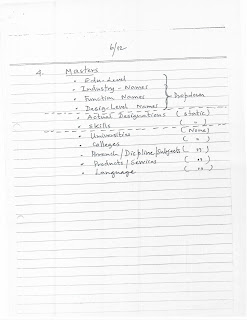 6/12
4. Masters
• Edu-Level
• Industry-Names
• Function Names } Dropdown
• Desig-Level Names
• Actual Designations (static)
• Skills ( " )
• Universities (None)
• Colleges ( " )
• Branch/Displine/Subjects ( " )
• Products/Services ( " )
• Language ( " )